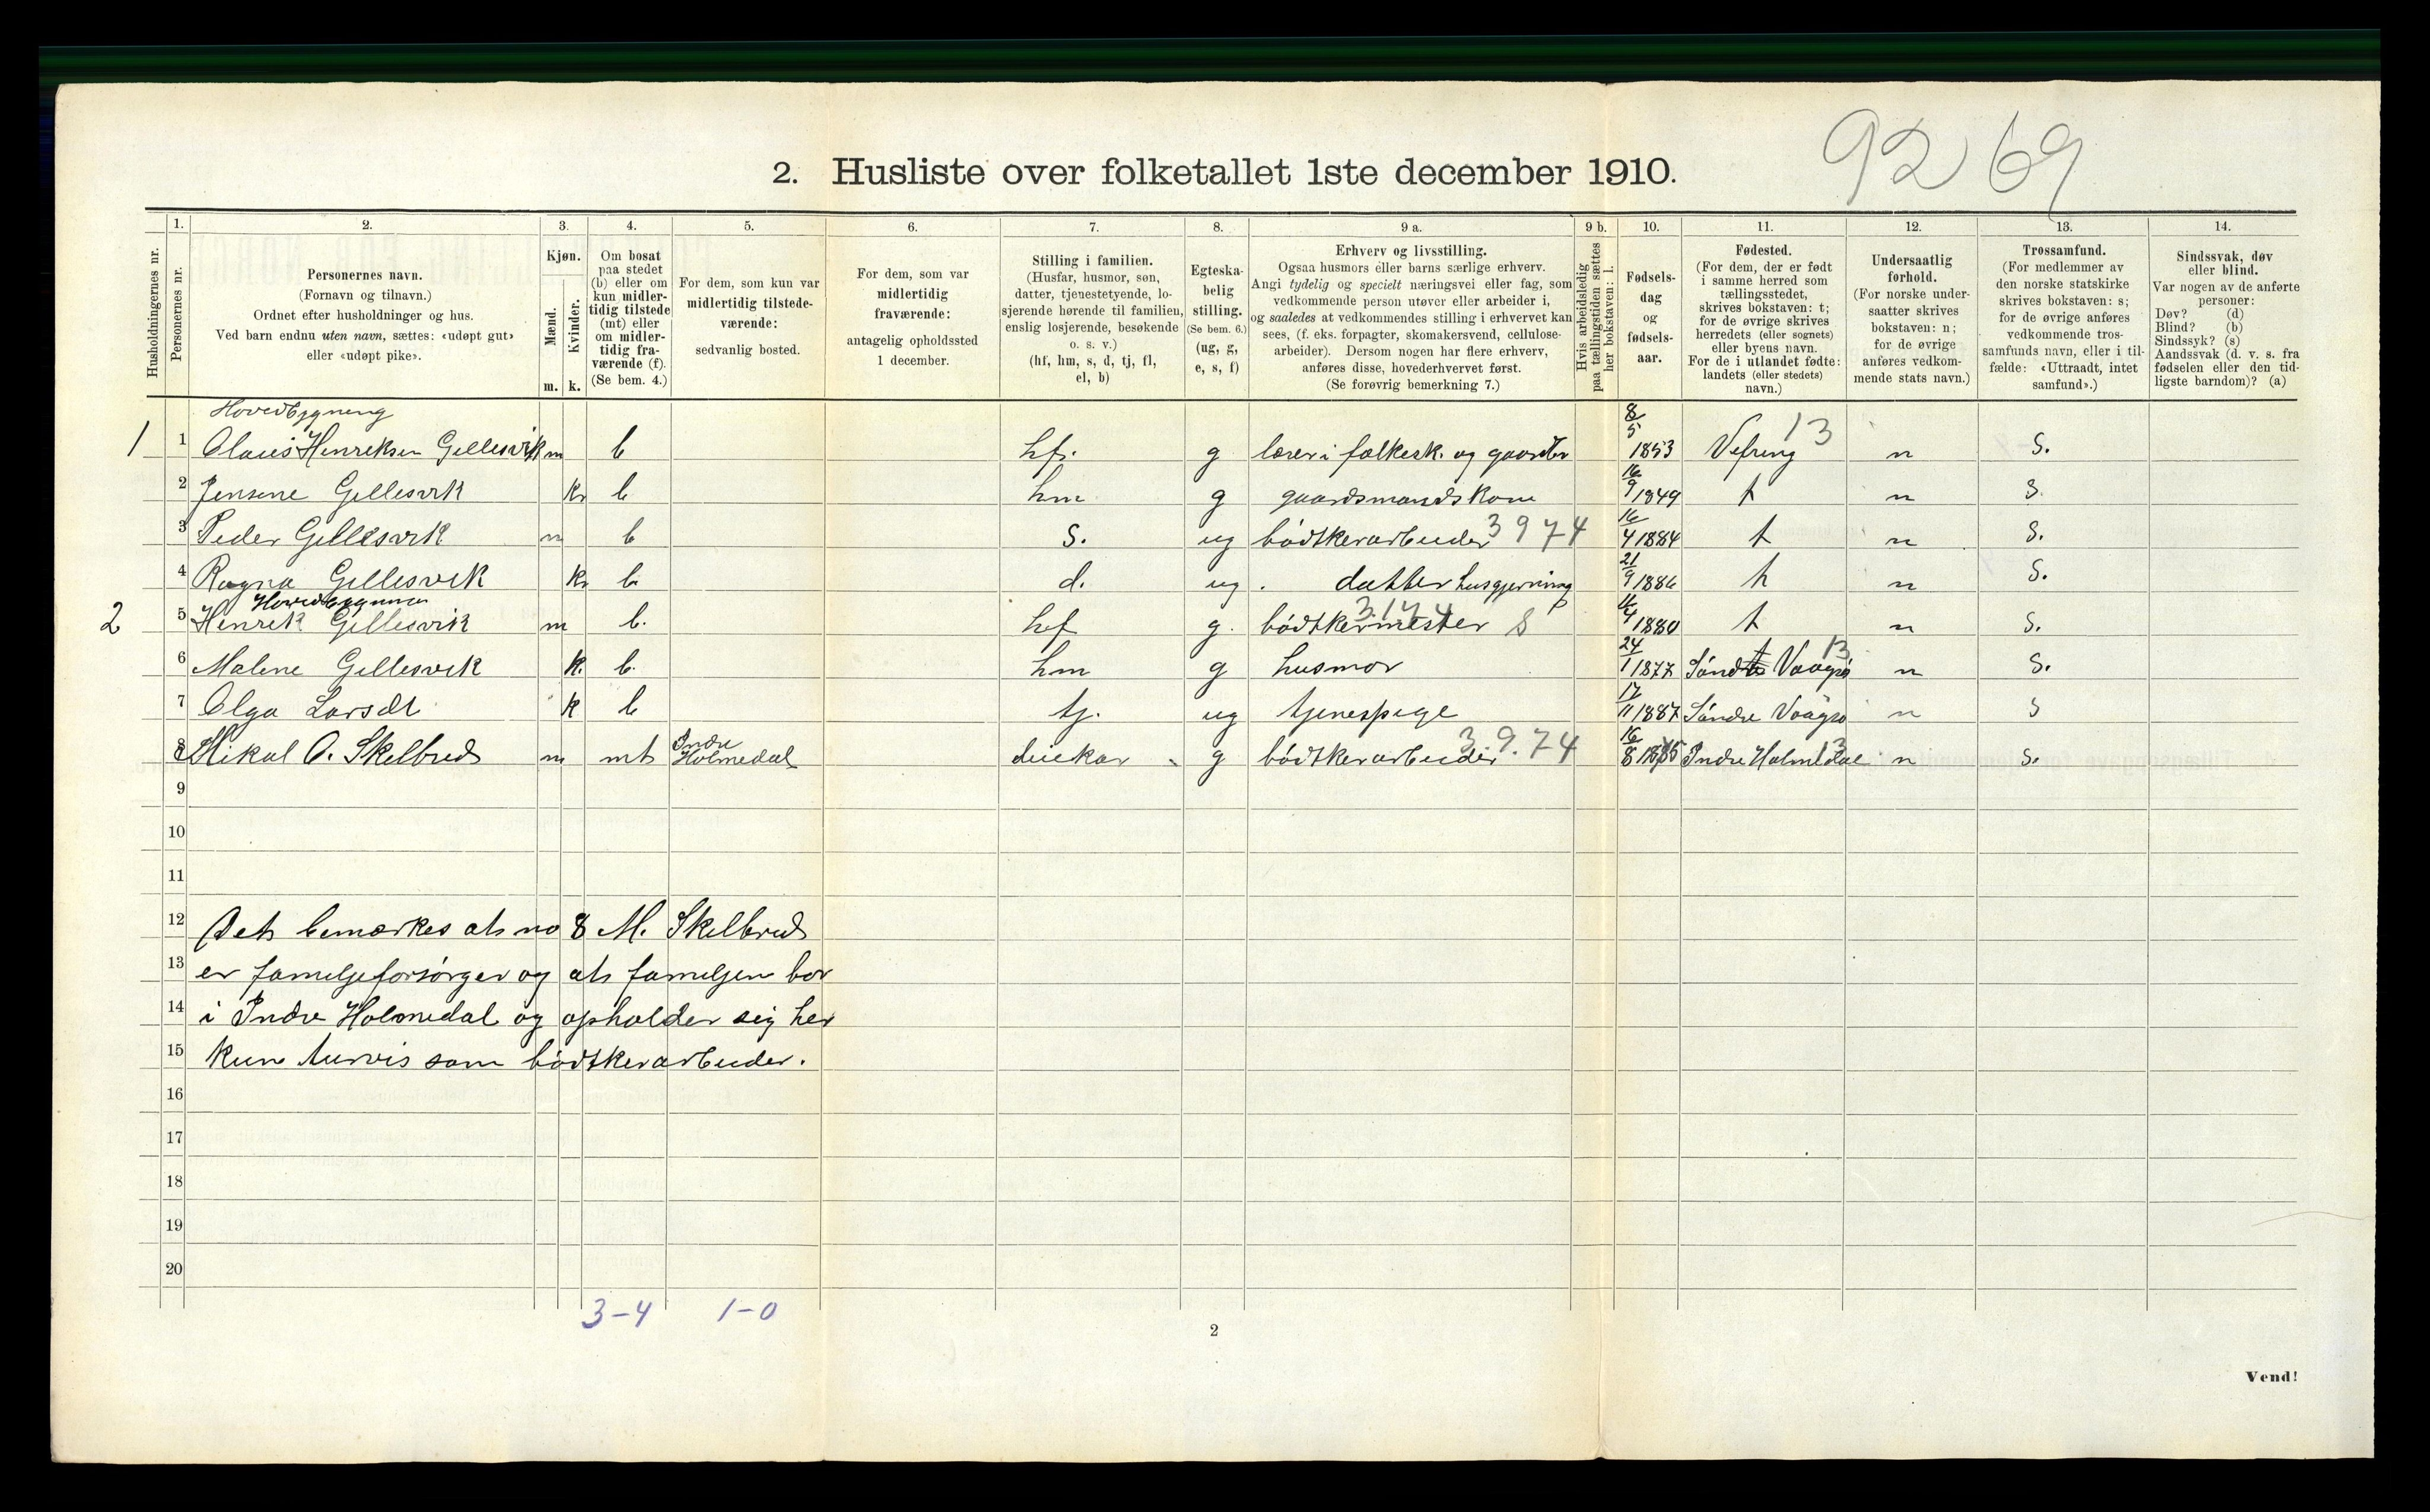 92 69
2. Husliste over folketallet 1ste december 1910.
1. 2. 3. 4. 5. 6. 7. 8. 9 a. 9 b. 10. 11. 12. 13. 14.
Husholdningernes nr.
Personernes nr.
Personernes navn.
(Fornavn og tilnavn.)
Ordnet efter husholdninger og hus.
Ved barn endnu uten navn, sættes: «udøpt gut»
eller «udøpt pike».
Kjøn.
Mænd.
Kvinder.
m. k.
Om bosat
paa stedet
(b) eller om
kun midler-
tidig tilstede
(mt) eller
om midler-
tidig fra-
værende (f).
(Se bem. 4.)
For dem, som kun var
midlertidig tilstede-
værende:
sedvanlig bosted.
For dem, som var
midlertidig
fraværende:
antagelig opholdssted
1 december.
Stilling i familien.
(Husfar, husmor, søn,
datter, tjenestetyende, lo-
sjerende hørende til familien,
enslig losjerende, besøkende
o. s. v.)
(hf, hm, s, d, tj, fl,
el, b)
Egteska-
belig
stilling.
(Se bem. 6.)
(ug, g,
e, s, f)
Erhverv og livsstilling.
Ogsaa husmors eller barns særlige erhverv.
Angi tydelig og specielt næringsvei eller fag, som
vedkommende person utøver eller arbeider i,
og saaledes at vedkommendes stilling i erhvervet kan
sees, (f. eks. forpagter, skomakersvend, cellulose-
arbeider). Dersom nogen har flere erhverv,
anføres disse, hovederhvervet først.
(Se forøvrig bemerkning 7.)
Hvis arbeidsledig
paa tællingstiden sættes
her bokstaven: l.
Fødsels-
dag
og
fødsels-
aar.
Fødested.
(For dem, der er født
i samme herred som
tællingsstedet,
skrives bokstaven: t;
for de øvrige skrives
herredets (eller sognets)
eller byens navn.
For de i utlandet fødte:
landets (eller stedets)
navn.)
Undersaatlig
forhold.
(For norske under-
saatter skrives
bokstaven: n;
for de øvrige
anføres vedkom-
mende stats navn.)
Trossamfund.
(For medlemmer av
den norske statskirke
skrives bokstaven: s;
for de øvrige anføres
vedkommende tros-
samfunds navn, eller i til-
fælde: «Uttraadt, intet
samfund».)
Sindssvak, døv
eller blind.
Var nogen av de anførte
personer:
Døv? (d)
Blind? (b)
Sindssyk? (s)
Aandssvak (d. v. s. fra
fødselen eller den tid-
ligste barndom)? (a)
Hovedbygning
1 1 Olaus Henriksen Gillesvik m b hf. g lærer i folkesk. og gaardbr 8/5 1853 Vefring 13 n S.
2 Jensine Gillesvik k b hm g gaardsmandskone 16/9 1849 t n S.
3 Peder Gillesvik m b S. ug bødtkerarbeider 3974 16/4 1884 t n S.
4 Ragna Gillesvik k b. d. ug. datter husgjerning 21/9 1886 t n S.
Hovedbygning
2 5 Henrik Gillesvik m b. hf g. bødtkermester 3.174 8 4 1880 t n S.
6 Malene Gillesvik k. b. hm g husmor 24/1 1877 Søndre Vaagsø 13 n S.
7 Olga Larsdt k b tj. ug tjenespige 17/11 1887 Søndre Vaagsø n S
8 Mikal O. Skilbred m mt Indre Holmedal g bødtkerarbeider 3.9.74 16/8 Indre Holmedal 13 n S.
9
10
11
12 Det bemærkes at no 8 M. Skilbred
13 er familjeforsørger og at familjen bor
14 i Indre Holmedal og opholder sig her
15 kun turvis som bødtkerarbeider.
16
17
18
19
20
3-4 1-0
2
Vend!